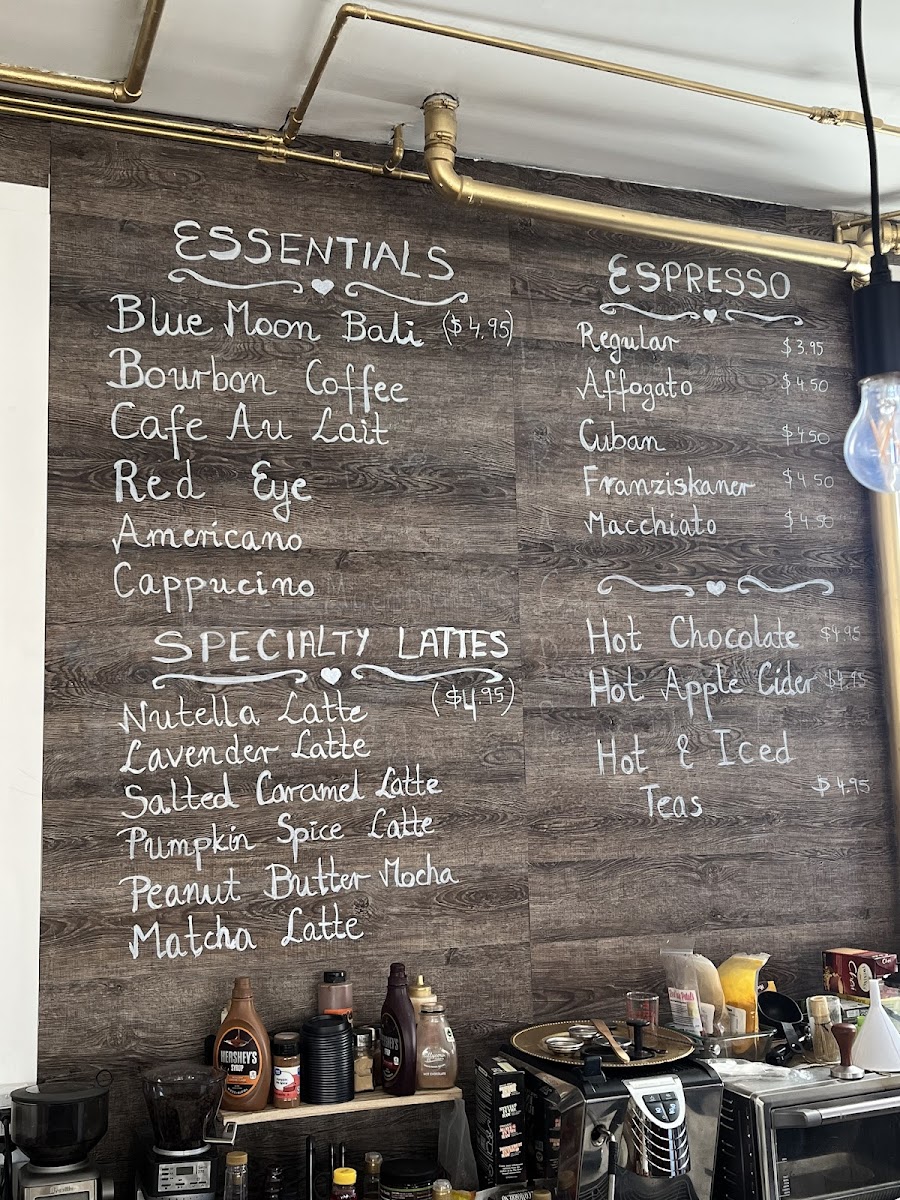 ESSENTIALS
Blue Moon Bali ($4.95)
Bourbon Coffee
Cafe Au Lait
Red Eye
Americano
Cappucino
SPECIALTY LATTES
($4.95)
Nutella Latte
Lavender Latte
Salted Caramel Latte
Pumpkin Spice Latte
Peanut Butter Mocha
Matcha Latte
ESPRESSO
Regular $3.95
Affogato $4.50
Cuban $4.50
Franziskaner $4.50
Macchiato $4.50
Hot Chocolate $4.95
Hot Apple Cider $4.95
Hot & Iced
Teas $4.95
HERSHEY'S
SYRUP
Chai